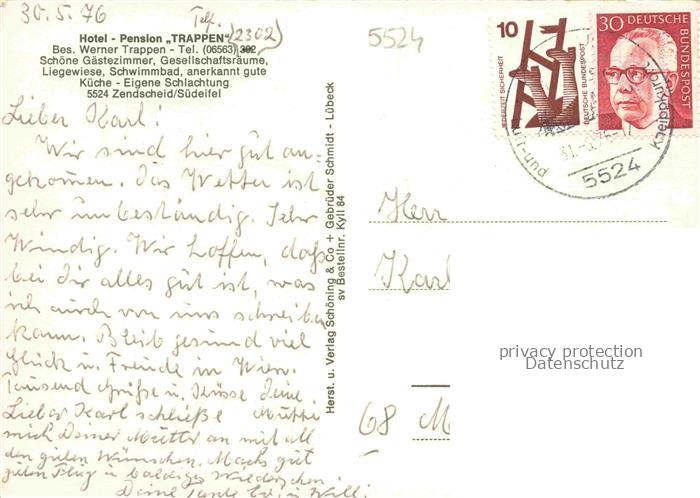 30.5.76
Telf. (2302)
Hotel - Pension „TRAPPEN"
Bes. Werner Trappen - Tel. (06563) 302
Schöne Gästezimmer, Gesellschaftsräume,
Liegewiese, Schwimmbad, anerkannt gute
Küche - Eigene Schlachtung
5524 Zendscheid/Südeifel
5524
10
JEDERZEIT SICHERHEIT
DEUTSCHE BUNDESPOST
30 DEUTSCHE
BUNDESPOST
5524
Lieber Karl!
Wir sind hier gut an-
gekommen. Das Wetter ist
sehr unbeständig. Sehr
Windig. Wir hoffen, daß
bei dir alles gut ist, was
ich auch von uns schreiben
kann. Bleib gesund viel
Glück u. Freude in Wien.
Tausend Grüße u. Küsse deine
Mutti
Lieber Karl schließe
mich Deiner Mutter an mit all
den guten Wünschen. Machs gut
guten Flug u baldiges Wiedersehen
Deine Tante u. Willi
Herst. u. Verlag Schöning & Co + Gebrüder Schmidt - Lübeck
sv Bestellnr. Kyll 84
Herr
Karl
68 M
privacy protection
Datenschutz